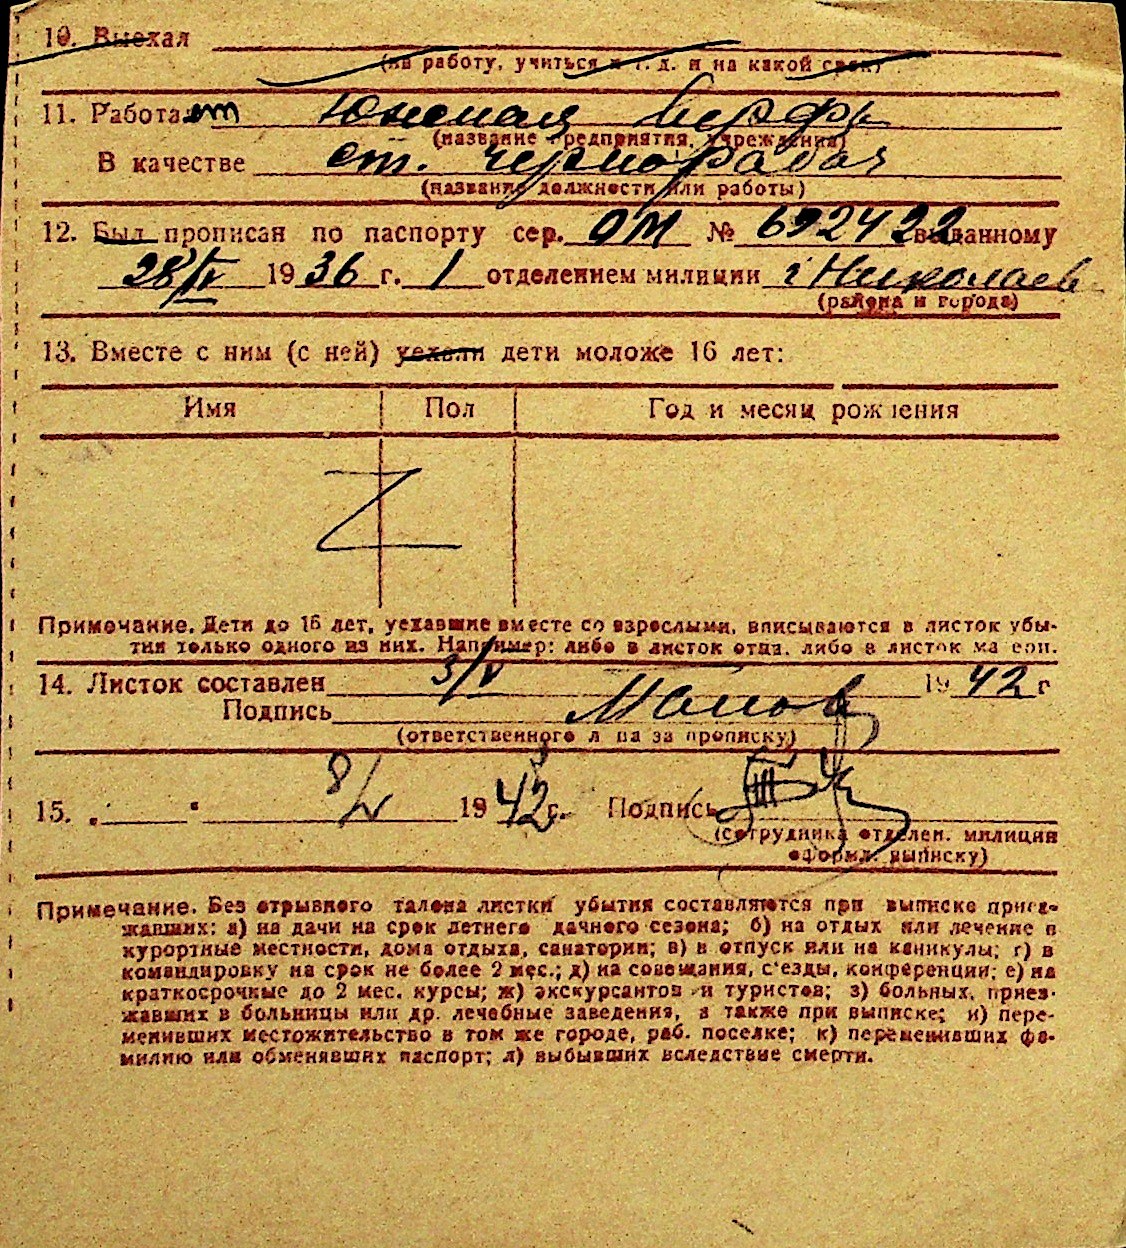 10. Выехал
(на работу, учиться и т. д. и на какой срок)
11. Работает Южная верфь
(название предприятия, учреждения)
В качестве ст. чернорабоч
(название должности или работы)
12. Был прописан по паспорту сер. ОМ № 692422 выданному
28/IV 1936 г. 1 отделением милиции г Николаев
(района и города)
13. Вместе с ним (с ней) уехали дети моложе 16 лет:
Имя Пол Год и месяц рождения
Z
Примечание. Дети до 16 лет, уехавшие вместе со взрослыми, вписываются в листок убы-
тия только одного из них. Например: либо в листок отца, либо в листок матери.
14. Листок составлен 3/V 1942 г
Подпись
(ответственного лица за прописку)
15. „ " 8/V 1942 г. Подпись
(сотрудника отделен. милиции
оформл. выписку)
Примечание. Без отрывного талона листки убытия составляются при выписке приез-
жавших: а) на дачи на срок летнего дачного сезона; б) на отдых или лечение в
курортные местности, дома отдыха, санатории; в) в отпуск или на каникулы; г) в
командировку на срок не более 2 мес.; д) на совещания, с'езды, конференции; е) на
краткосрочные до 2 мес. курсы; ж) экскурсантов и туристов; з) больных, приез-
жавших в больницы или др. лечебные заведения, а также при выписке; и) пере-
менивших местожительство в том же городе, раб. поселке; к) переменивших фа-
милию или обменявших паспорт; л) выбывших вследствие смерти.